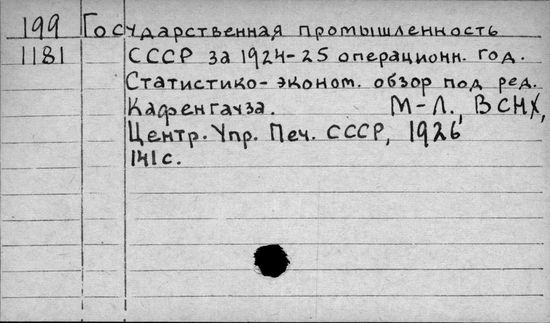 199 Государственная промышленность
1181 СССР за 1924-25 операционн. год.
Статистико-эконом. обзор под ред.
Кафенгауза. М-Л., ВСНХ,
Центр. Упр. Печ. СССР, 1926
141 с.